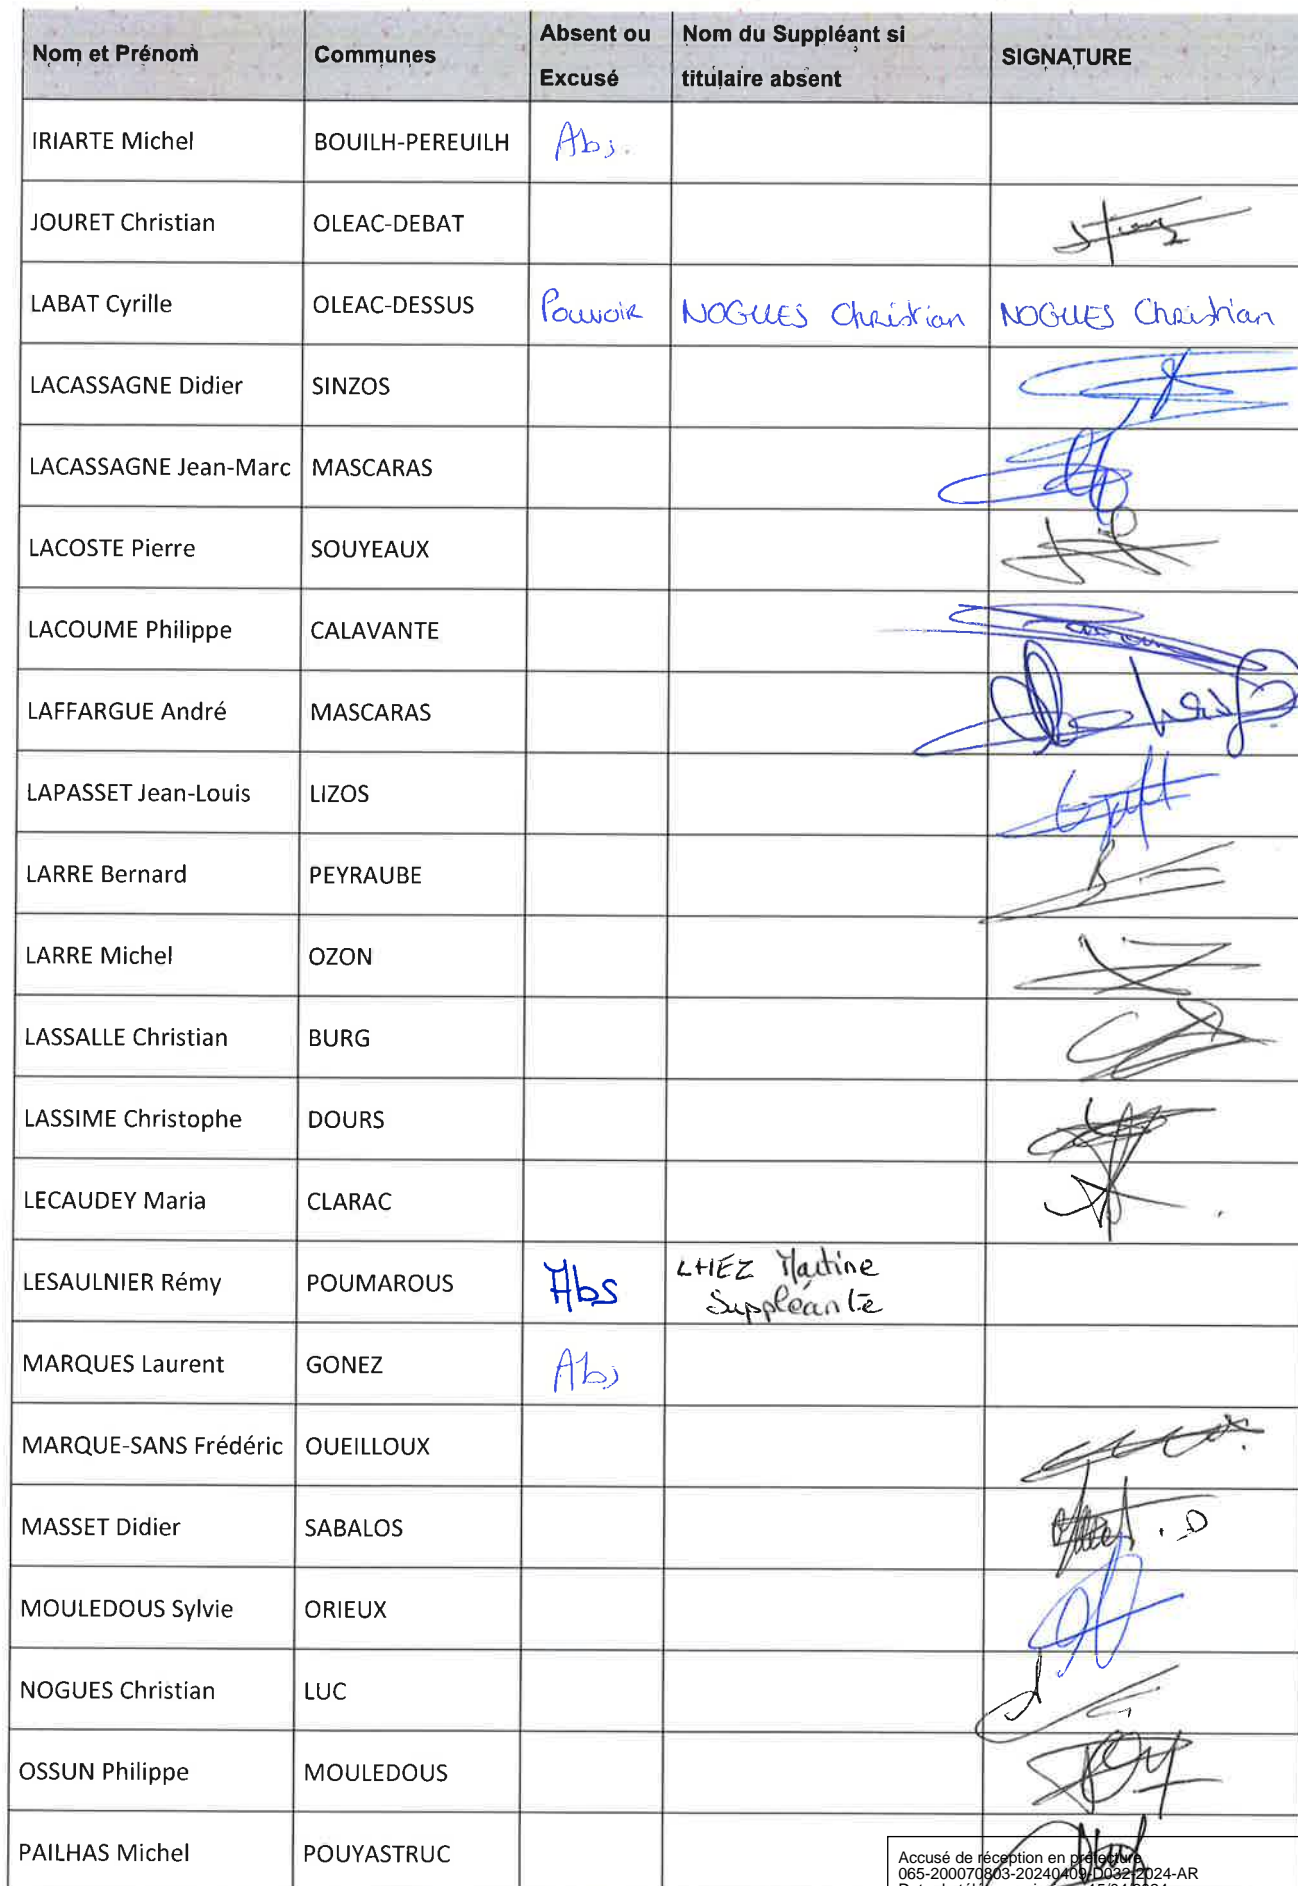 Nom et Prénom Communes Absent ou Excusé Nom du Suppléant si titulaire absent SIGNATURE
IRIARTE Michel BOUILH-PEREUILH Abs.
JOURET Christian OLEAC-DEBAT
LABAT Cyrille OLEAC-DESSUS Pouvoir NOGUES Christian NOGUES Christian
LACASSAGNE Didier SINZOS
LACASSAGNE Jean-Marc MASCARAS
LACOSTE Pierre SOUYEAUX
LACOUME Philippe CALAVANTE
LAFFARGUE André MASCARAS
LAPASSET Jean-Louis LIZOS
LARRE Bernard PEYRAUBE
LARRE Michel OZON
LASSALLE Christian BURG
LASSIME Christophe DOURS
LECAUDEY Maria CLARAC
LESAULNIER Rémy POUMAROUS Abs LHEZ Martine Suppléante
MARQUES Laurent GONEZ Abs
MARQUE-SANS Frédéric OUEILLOUX
MASSET Didier SABALOS
MOULEDOUS Sylvie ORIEUX
NOGUES Christian LUC
OSSUN Philippe MOULEDOUS
PAILHAS Michel POUYASTRUC
Accusé de réception en préfecture
065-200070803-20240409-D032-2024-AR